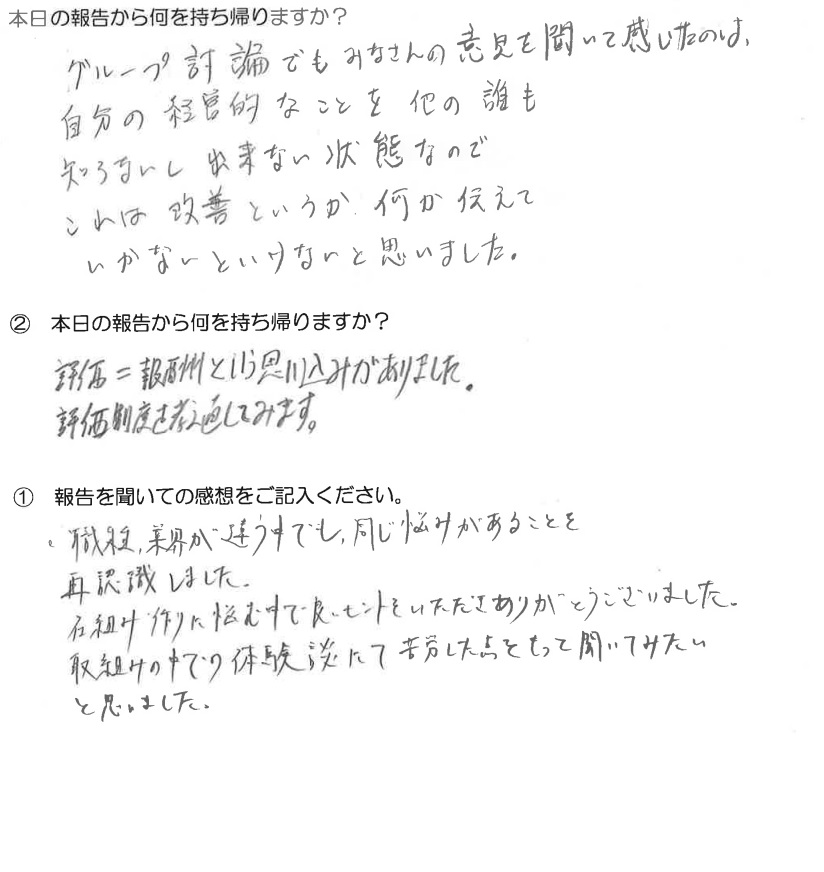 本日の報告から何を持ち帰りますか？
グループ討論でもみなさんの意見を聞いて感じたのは、
自分の経営的なことを他の誰も
知らないし出来ない状態なので
これは改善というか、何か伝えて
いかないといけないと思いました。
② 本日の報告から何を持ち帰りますか？
評価＝報酬という思い込みがありました。
評価制度を考え直してみます。
① 報告を聞いての感想をご記入ください。
職種、業界が違う中でも、同じ悩みがあることを
再認識しました。
組み作りに悩む中で良いヒントをいただきありがとうございました。
取組みの中での体験談にて苦労した点をもって聞いてみたい
と思いました。